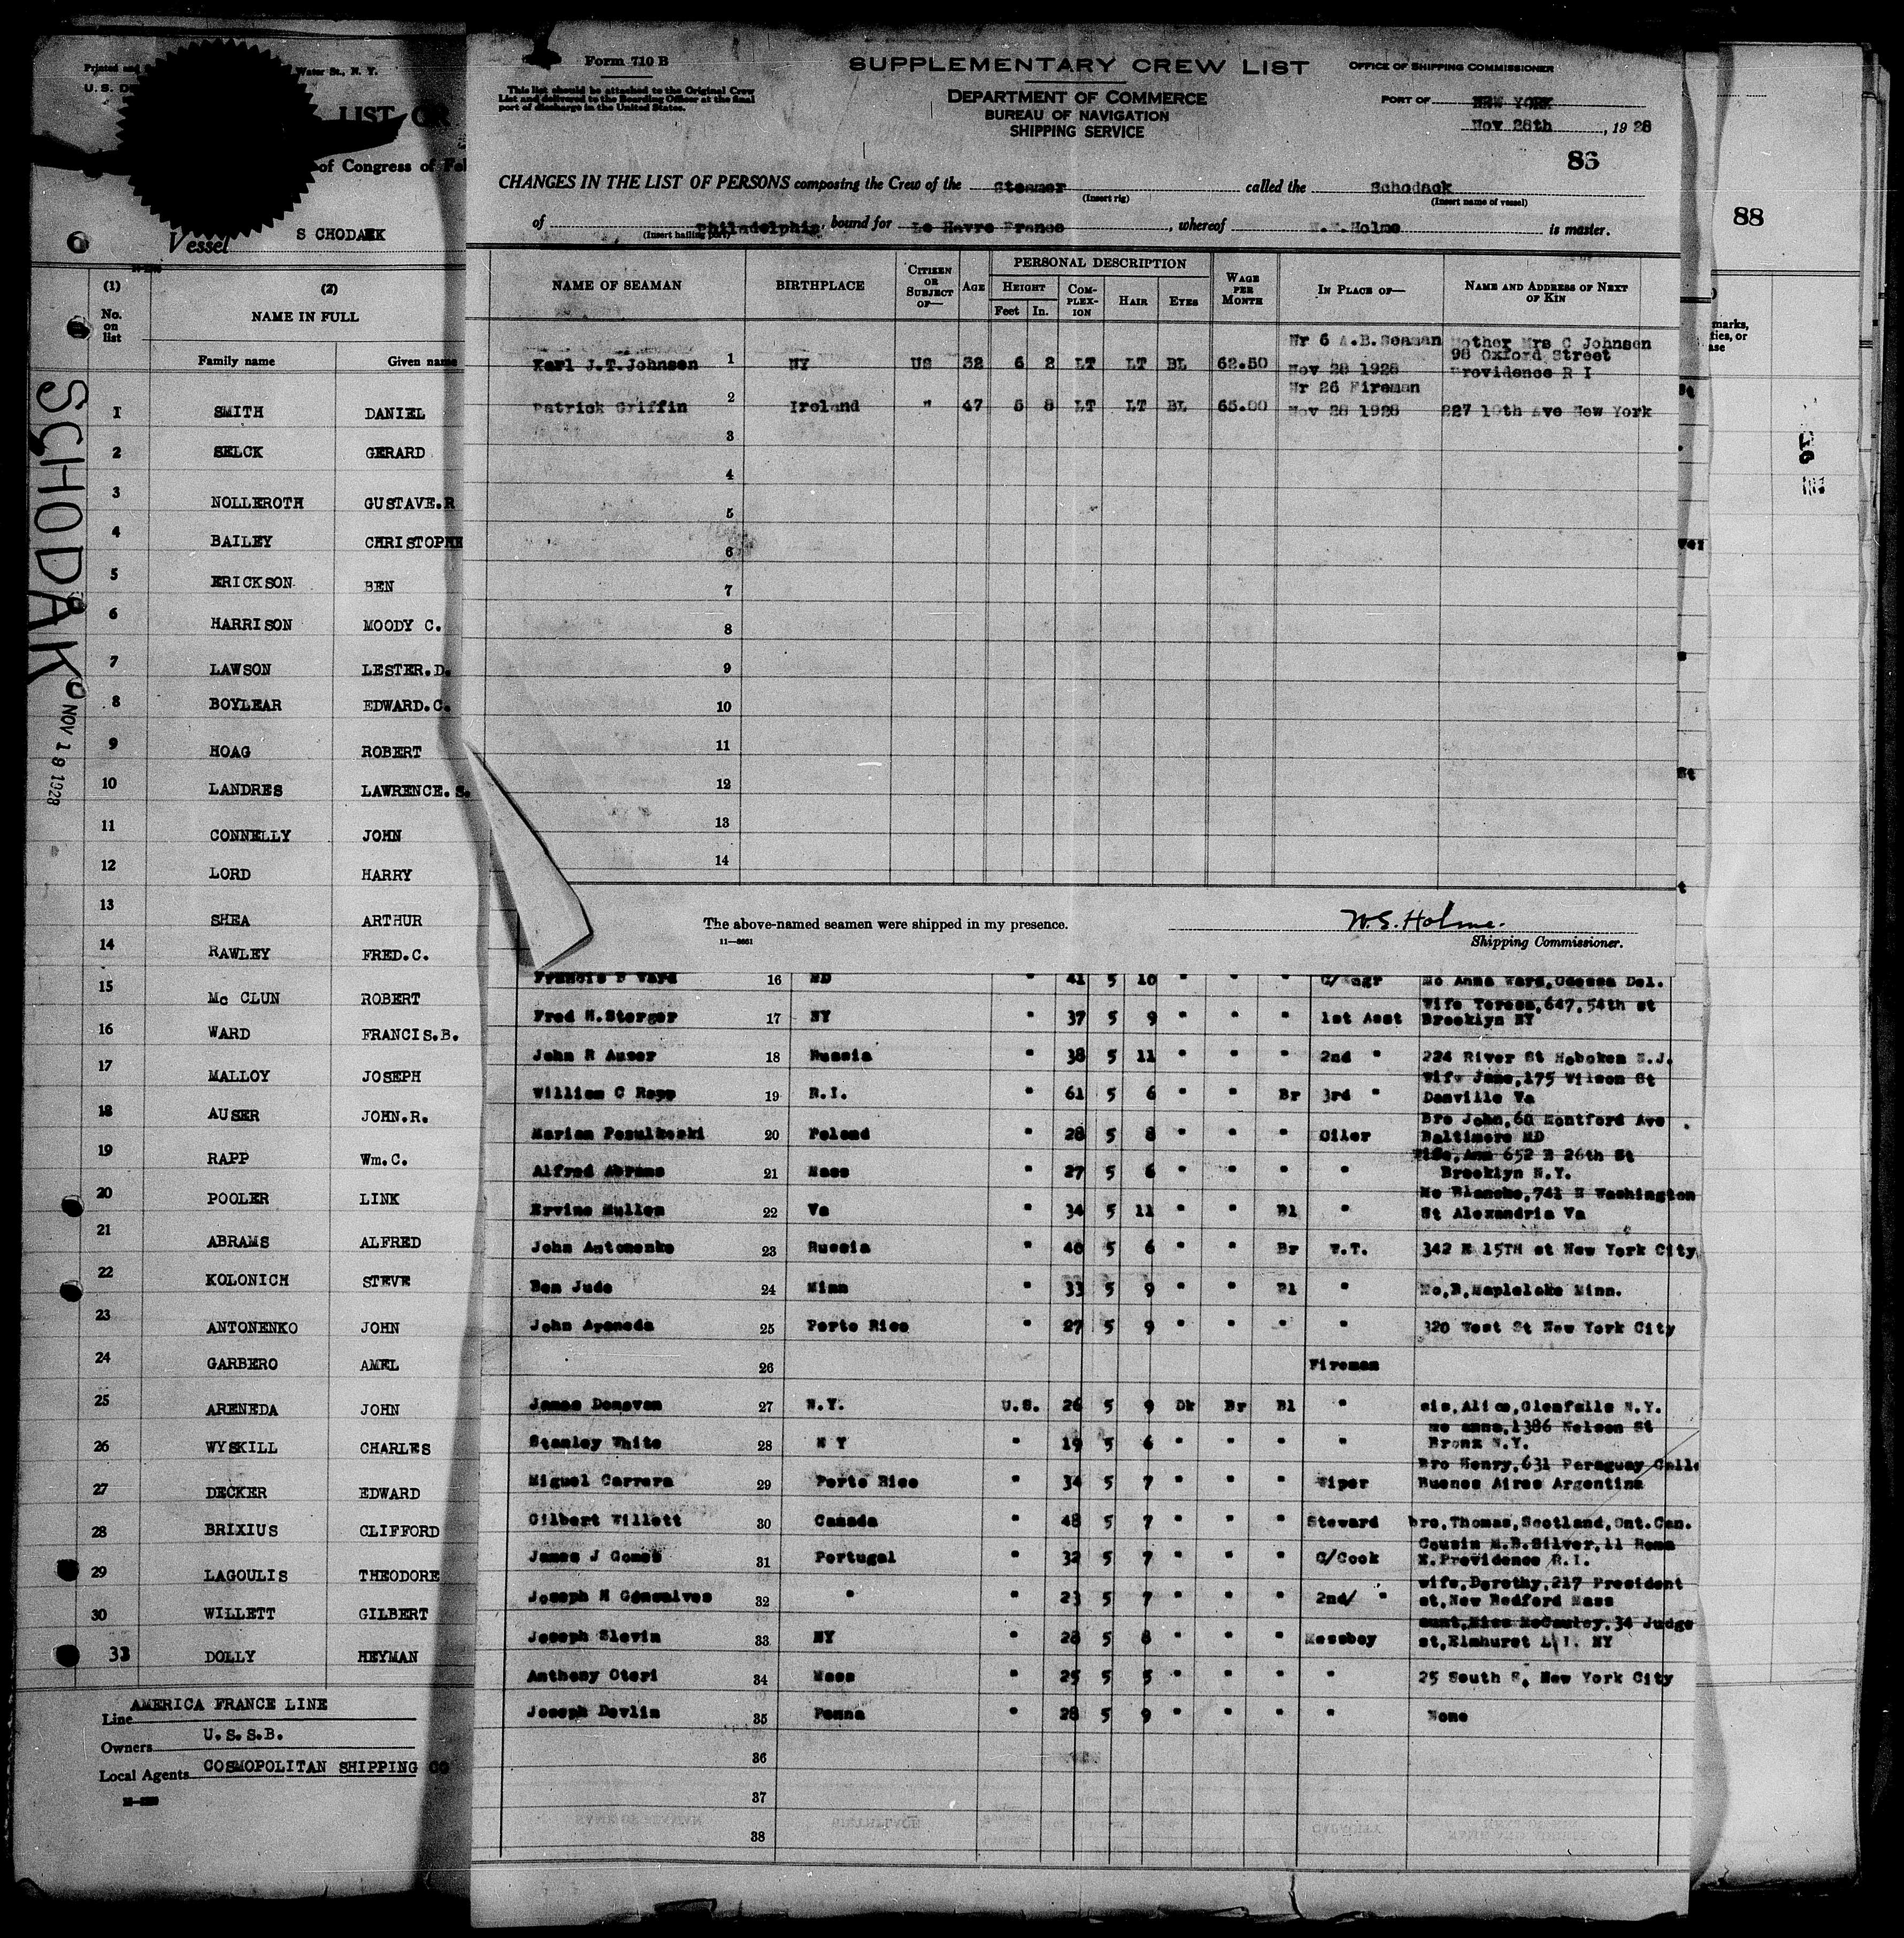 Printed and
Water St., N. Y.
U. S. De
LIST OR
of Congress of Fe
Vessel S CHODAEK
(1) (2)
No. on list
NAME IN FULL
Family name Given name
SCHODAK
NOV 18 1928
1 SMITH DANIEL
2 SELCK GERARD
3 NOLLEROTH GUSTAVE.R
4 BAILEY CHRISTOPHE
5 ERICKSON BEN
6 HARRISON MOODY C.
7 LAWSON LESTER.D.
8 BOYLEAR EDWARD.C.
9 HOAG ROBERT
10 LANDRES LAWRENCE.S.
11 CONNELLY JOHN
12 LORD HARRY
13 SHEA ARTHUR
14 RAWLEY FRED.C.
15 Mc CLUN ROBERT
16 WARD FRANCIS.B.
17 MALLOY JOSEPH
18 AUSER JOHN.R.
19 RAPP Wm.C.
20 POOLER LINK
21 ABRAMS ALFRED
22 KOLONICH STEVE
23 ANTONENKO JOHN
24 GARBERO AMEL
25 ARENEDA JOHN
26 WYSKILL CHARLES
27 DECKER EDWARD
28 BRIXIUS CLIFFORD
29 LAGOULIS THEODORE
30 WILLETT GILBERT
33 DOLLY HEYMAN
Line AMERICA FRANCE LINE
Owners U.S.S.B.
Local Agents COSMOPOLITAN SHIPPING CO
Form 710 B
This list should be attached to the Original Crew
List and delivered to the Boarding Officer at the final
port of discharge in the United States.
SUPPLEMENTARY CREW LIST
DEPARTMENT OF COMMERCE
BUREAU OF NAVIGATION
SHIPPING SERVICE
OFFICE OF SHIPPING COMMISSIONER
PORT OF NEW YORK
Nov 28th, 1928
86
CHANGES IN THE LIST OF PERSONS composing the Crew of the Steamer called the Schodack
(Insert rig) (Insert name of vessel)
of Philadelphia, bound for Le Havre France, whereof Holme is master.
(Insert hailing port)
NAME OF SEAMAN BIRTHPLACE CITIZEN OR SUBJECT OF— AGE PERSONAL DESCRIPTION HEIGHT Feet In. COMPLEXION HAIR EYES WAGE PER MONTH IN PLACE OF— NAME AND ADDRESS OF NEXT OF KIN
Nr 6 A.B.Seaman Mother Mrs C Johnsen
Karl J.T.Johnsen 1 NY US 32 6 2 LT LT BL 62.50 Nov 28 1928 98 Oxford Street
Providence R I
Nr 26 Fireman
Patrick Griffin 2 Ireland " 47 5 8 LT LT BL 65.00 Nov 28 1928 227 10th Ave New York
3
4
5
6
7
8
9
10
11
12
13
14
The above-named seamen were shipped in my presence.
11—8661
W.S. Holme.
Shipping Commissioner.
Francis B Ward 16 MD " 41 5 10 " " " C/Engr Mo Anna Ward,Odessa Del.
Wife Teresa,647,54th st
Fred H.Sterger 17 NY " 37 5 9 " " " 1st Asst Brooklyn NY
John R Auser 18 Russia " 38 5 11 " " " 2nd " 224 River St Hoboken N.J.
Wife Jane,175 Wilson St
William C Rapp 19 R.I. " 61 5 6 " " Br 3rd " Danville Va
Bro John,60 Montford Ave
Marian Pesulkoski 20 Poland " 28 5 8 " " " Oiler Baltimore MD
Wife,Ann 652 E 26th St
Alfred Abrams 21 Mass " 27 5 6 " " " " Brooklyn N.Y.
Mo Blanche,741 N Washington
Ervine Mullen 22 Va " 34 5 11 " " Bl " St Alexandria Va
John Antonenko 23 Russia " 40 5 6 " " Br W.T. 342 E 15TH st New York City
Ben Jude 24 Minn " 33 5 9 " " Bl " Mo,B,Maplelake Minn.
John Areneda 25 Porto Rico " 27 5 9 " " " " 320 West St New York City
26 Fireman
James Donovan 27 N.Y. U.S. 26 5 9 Dk Br Bl " sis,Alice,Glenfalls N.Y.
mo anna,1386 Nelson St
Stanley White 28 N Y " 19 5 6 " " " " Bronx N.Y.
Bro Henry,631 Paraguay Calle
Miguel Carrera 29 Porto Rico " 34 5 7 " " " Wiper Buenos Aires Argentina
Gilbert Willett 30 Canada " 48 5 7 " " " Steward bro,Thomas,Scotland,Ont.Can.
Cousin M.B.Silver,11 Rema
James J Gomes 31 Portugal " 32 5 7 " " " C/Cook E.Providence R.I.
wife,Dorothy,217 President
Joseph M Gonsalves 32 " " 23 5 7 " " " 2nd/ " st,New Bedford Mass
aunt,Miss McCauley,34 Judge
Joseph Slevin 33 NY " 28 5 8 " " " Messboy st,Elmhurst L.I. NY
Anthony Oteri 34 Mass " 25 5 5 " " " " 25 South S, New York City
Joseph Devlin 35 Penna " 28 5 9 " " " " None
36
37
38
88
marks,
ties, or
ase